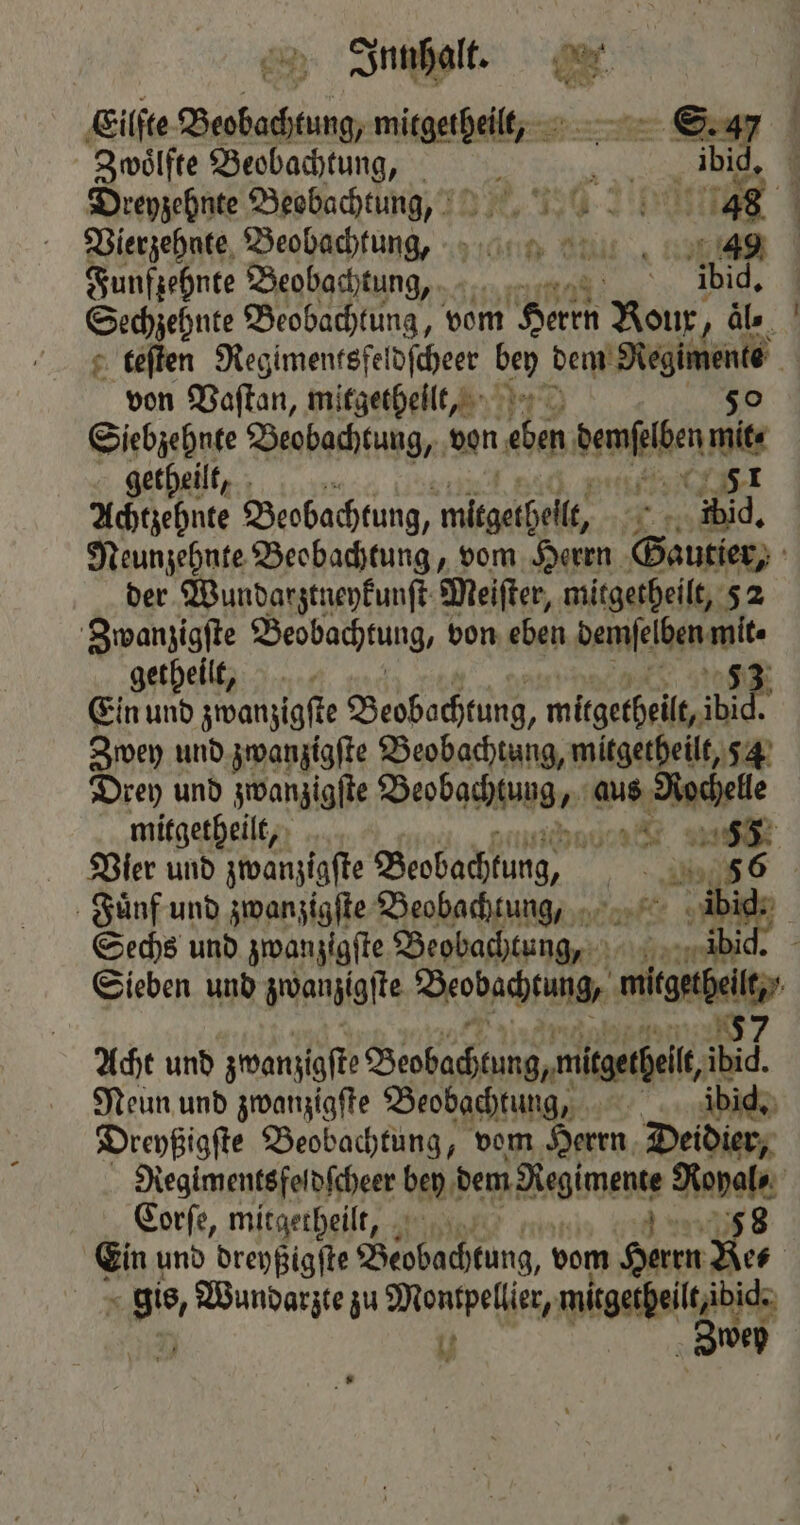 Innhalt.
Eilfte Beobachtung, mitgetheilt, S. 47
Zwoͤlfte Beobachtung, ibid.
Dreyzehnte Beobachtung, 48
Vierzehnte Beobachtung, 49
Funfzehnte Beobachtung, ibid.
Sechzehnte Beobachtung, vom Herrn Roux, aͤl-
teſten Regimentsfeldſcheer bey dem Regimente
von Vaſtan, mitgetheilt, 50
Siebzehnte Beobachtung, von eben demſelben mit-
getheilt, 51
Achtzehnte Beobachtung, mitgetheilt, ibid.
Neunzehnte Beobachtung, vom Herrn Gautier,
der Wundarztneykunſt Meiſter, mitgetheilt, 52
Zwanzigſte Beobachtung, von eben demſelben mit-
getheilt, 53
Ein und zwanzigſte Beobachtung, mitgetheilt, ibid.
Zwey und zwanzigſte Beobachtung, mitgetheilt, 54
Drey und zwanzigſte Beobachtung, aus Rochelle
mitgetheilt, 55
Vier und zwanzigſte Beobachtung, 56
Fuͤnf und zwanzigſte Beobachtung, ibid.
Sechs und zwanzigſte Beobachtung, ibid.
Sieben und zwanzigſte Beobachtung, mitgetheilt,
57
Acht und zwanzigſte Beobachtung, mitgetheilt, ibid.
Neun und zwanzigſte Beobachtung, ibid.
Dreyßigſte Beobachtung, vom Herrn Deidier,
Regimentsfeldſcheer bey dem Regimente Royal-
Corſe, mitgetheilt, 58
Ein und dreyßigſte Beobachtung, vom Herrn Re-
gis, Wundarzte zu Montpellier, mitgetheilt, ibid.
Zwey